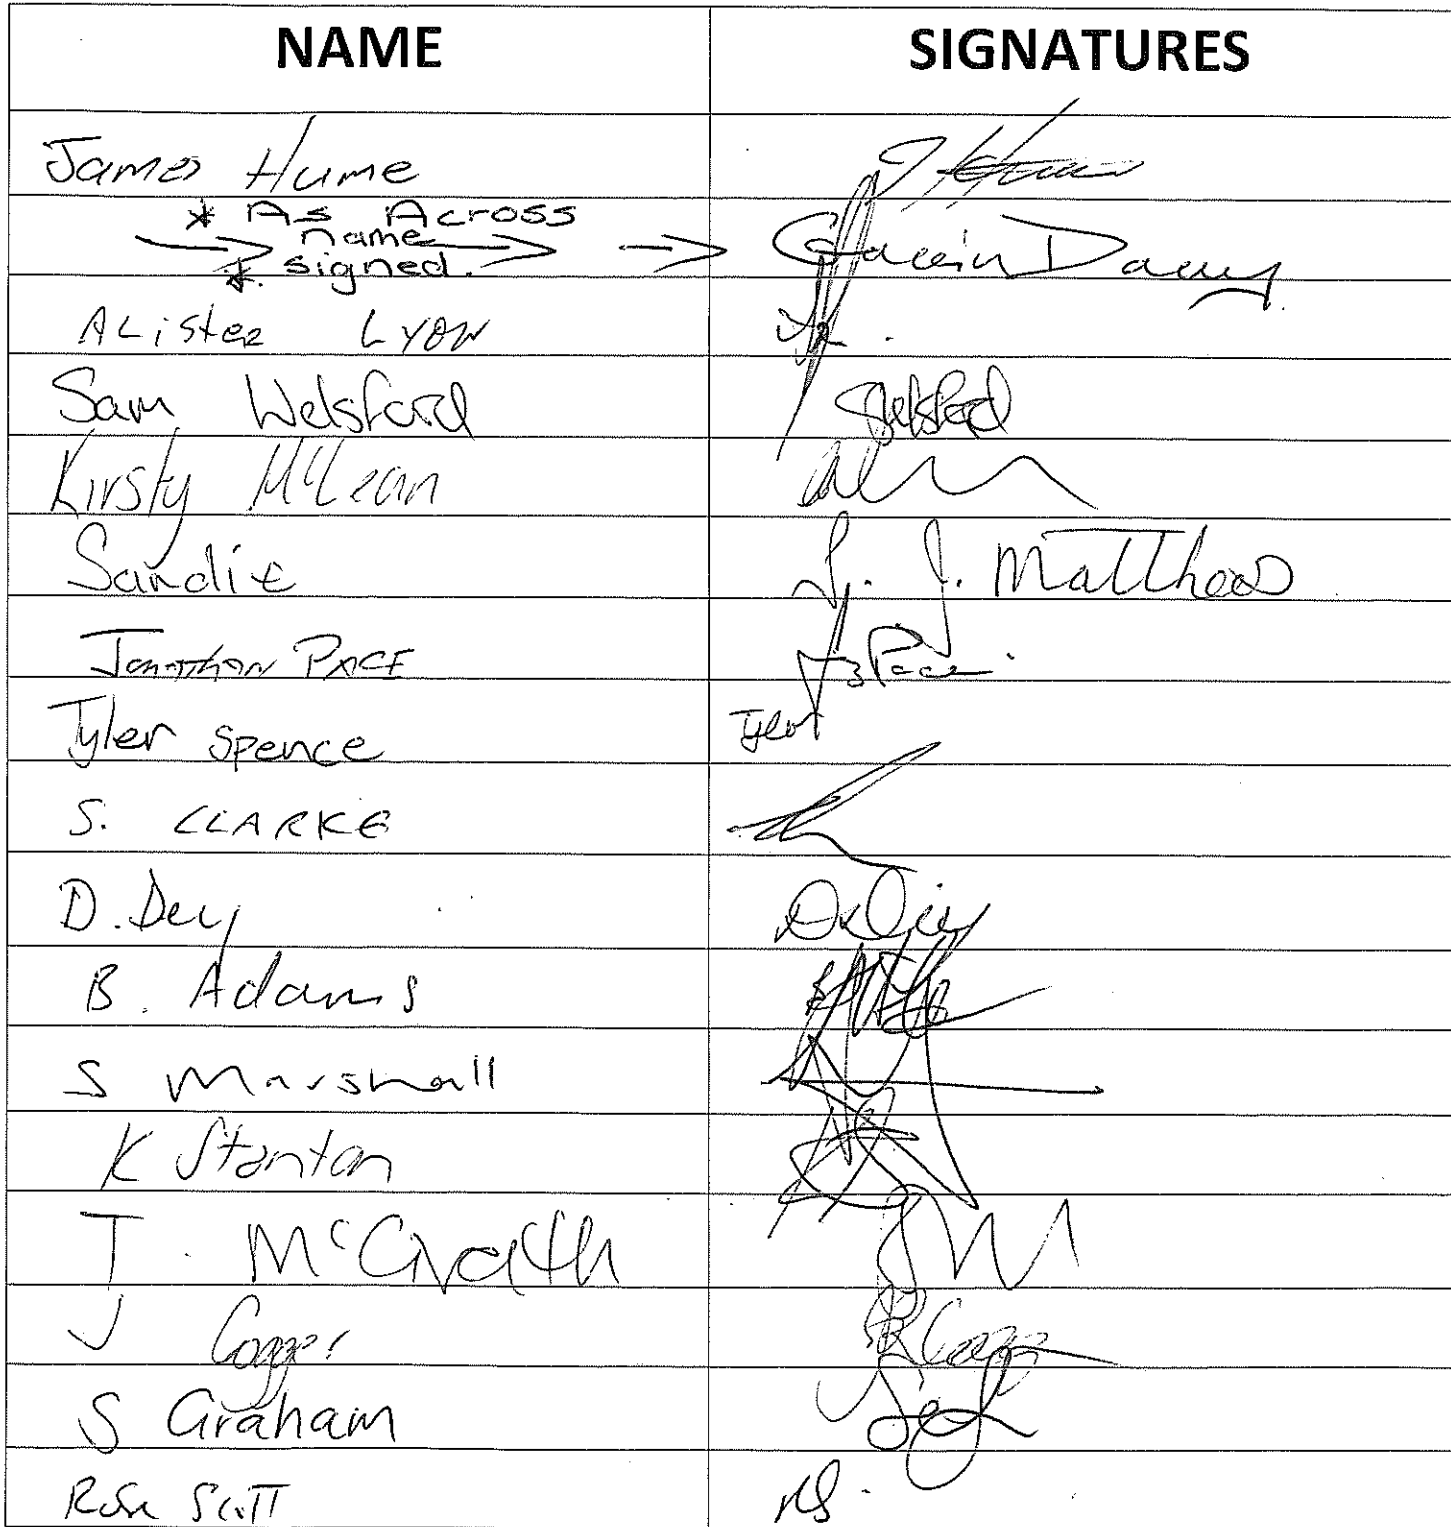 NAME SIGNATURES
James Hume
* As Across
name
* signed. Gavin Davey
ALister LYON
Sam Welsford
Kirsty McLean
Sandie S. J. Matthews
Jonathon PACE JBPace
Tyler Spence Tyler
S. CLARKE
D. Dey
B. Adams
S Marshall
K Stanton
T. McGrath TM
J Cogger
S Graham
Scott RS.